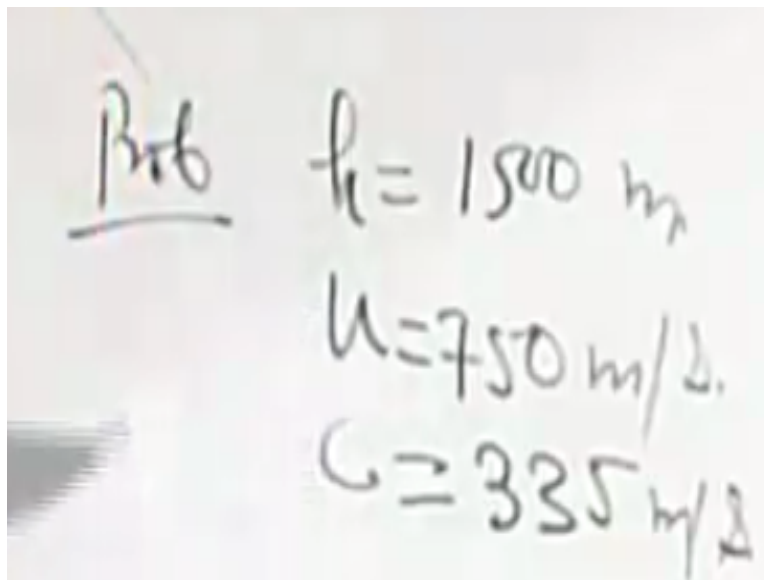 Prob h = 1500 m
U = 750 m/s.
C = 335 m/s